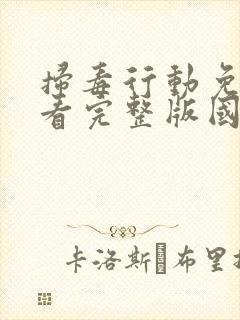 掃毒行動免
看完整版國
卡洛斯·布里